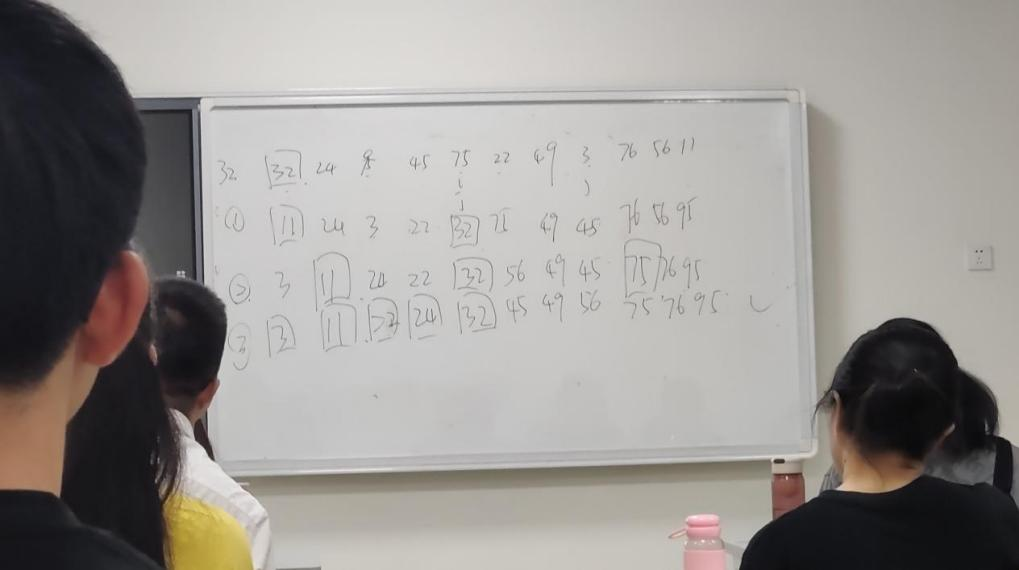 32 32 24 95 45 75 22 49 3 76 56 11
i j
j
① 11 24 3 22 32 75 49 45 76 56 95
② 3 11 24 22 32 56 49 45 75 76 95
③ 3 11 22 24 32 45 49 56 75 76 95